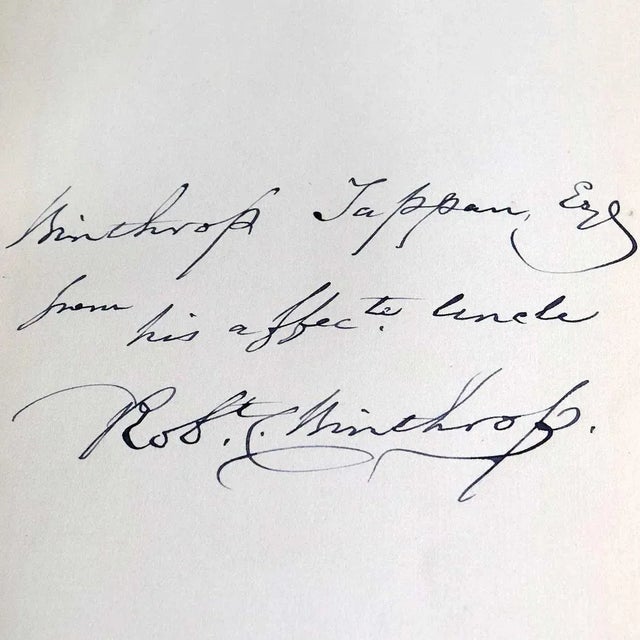 Winthrop Tappan, Esq
from his affecte. Uncle
Robt. C. Winthrop.